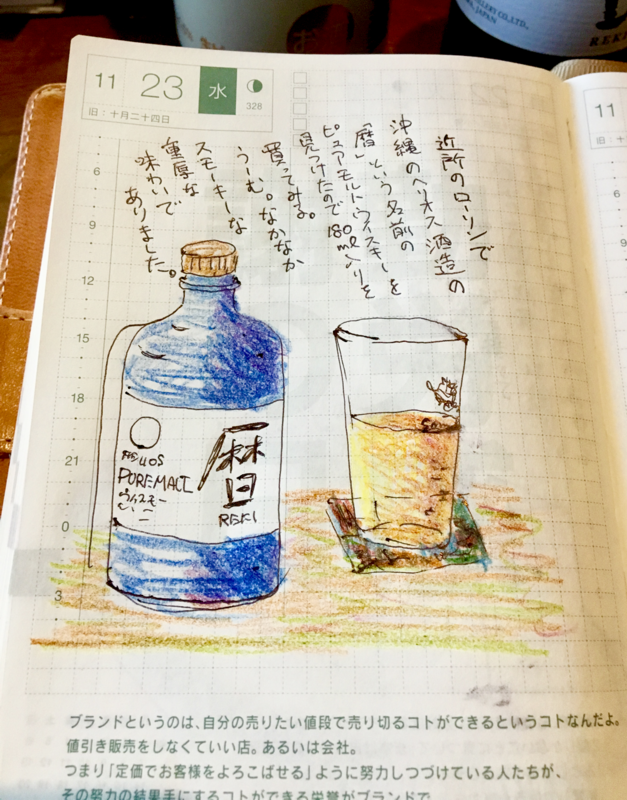 LERY CO.,LTD.
JAPAN
REKI
11 23 水
328
旧：十月二十四日
11
旧：十
近所のローソンで
沖縄のヘリオス酒造の
「暦」という名前の
ピュアモルトウィスキーを
見つけたので180ml入りを
買ってみる。
うーむ。なかなか
スモーキーな
重厚な
味わいで
ありました。
6
9
12
15
18
21
0
3
HELIOS
PUREMALT
ウイスキー
暦
REKI
ブランドというのは、自分の売りたい値段で売り切るコトができるというコトなんだよ。
値引き販売をしなくていい店。あるいは会社。
つまり「定価でお客様をよろこばせる」ように努力しつづけている人たちが、
その努力の結果手にするコトができる栄誉がブランドで